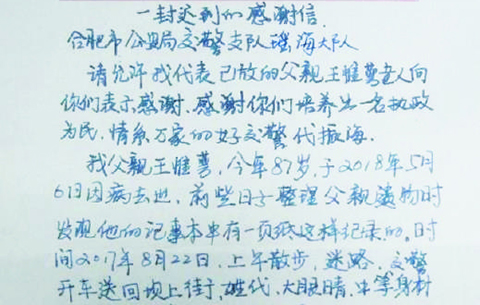 一封迟到的感谢信
合肥市公安局交警支队瑶海大队
请允许我代表已故的父亲王惟尊老人向
你们表示感谢. 感谢你们培养出一名执政
为民. 情系万家的好交警代振海.
我父亲王惟尊, 今年87岁, 于2018年5月
6日因病去世, 前些日子整理父亲遗物时
发现他的记事本中有一页纸这样纪录的. 时
间2017年8月22日, 上午散步, 迷路, 交警
开车送回坝上街, 姓代、大眼睛、中等身材